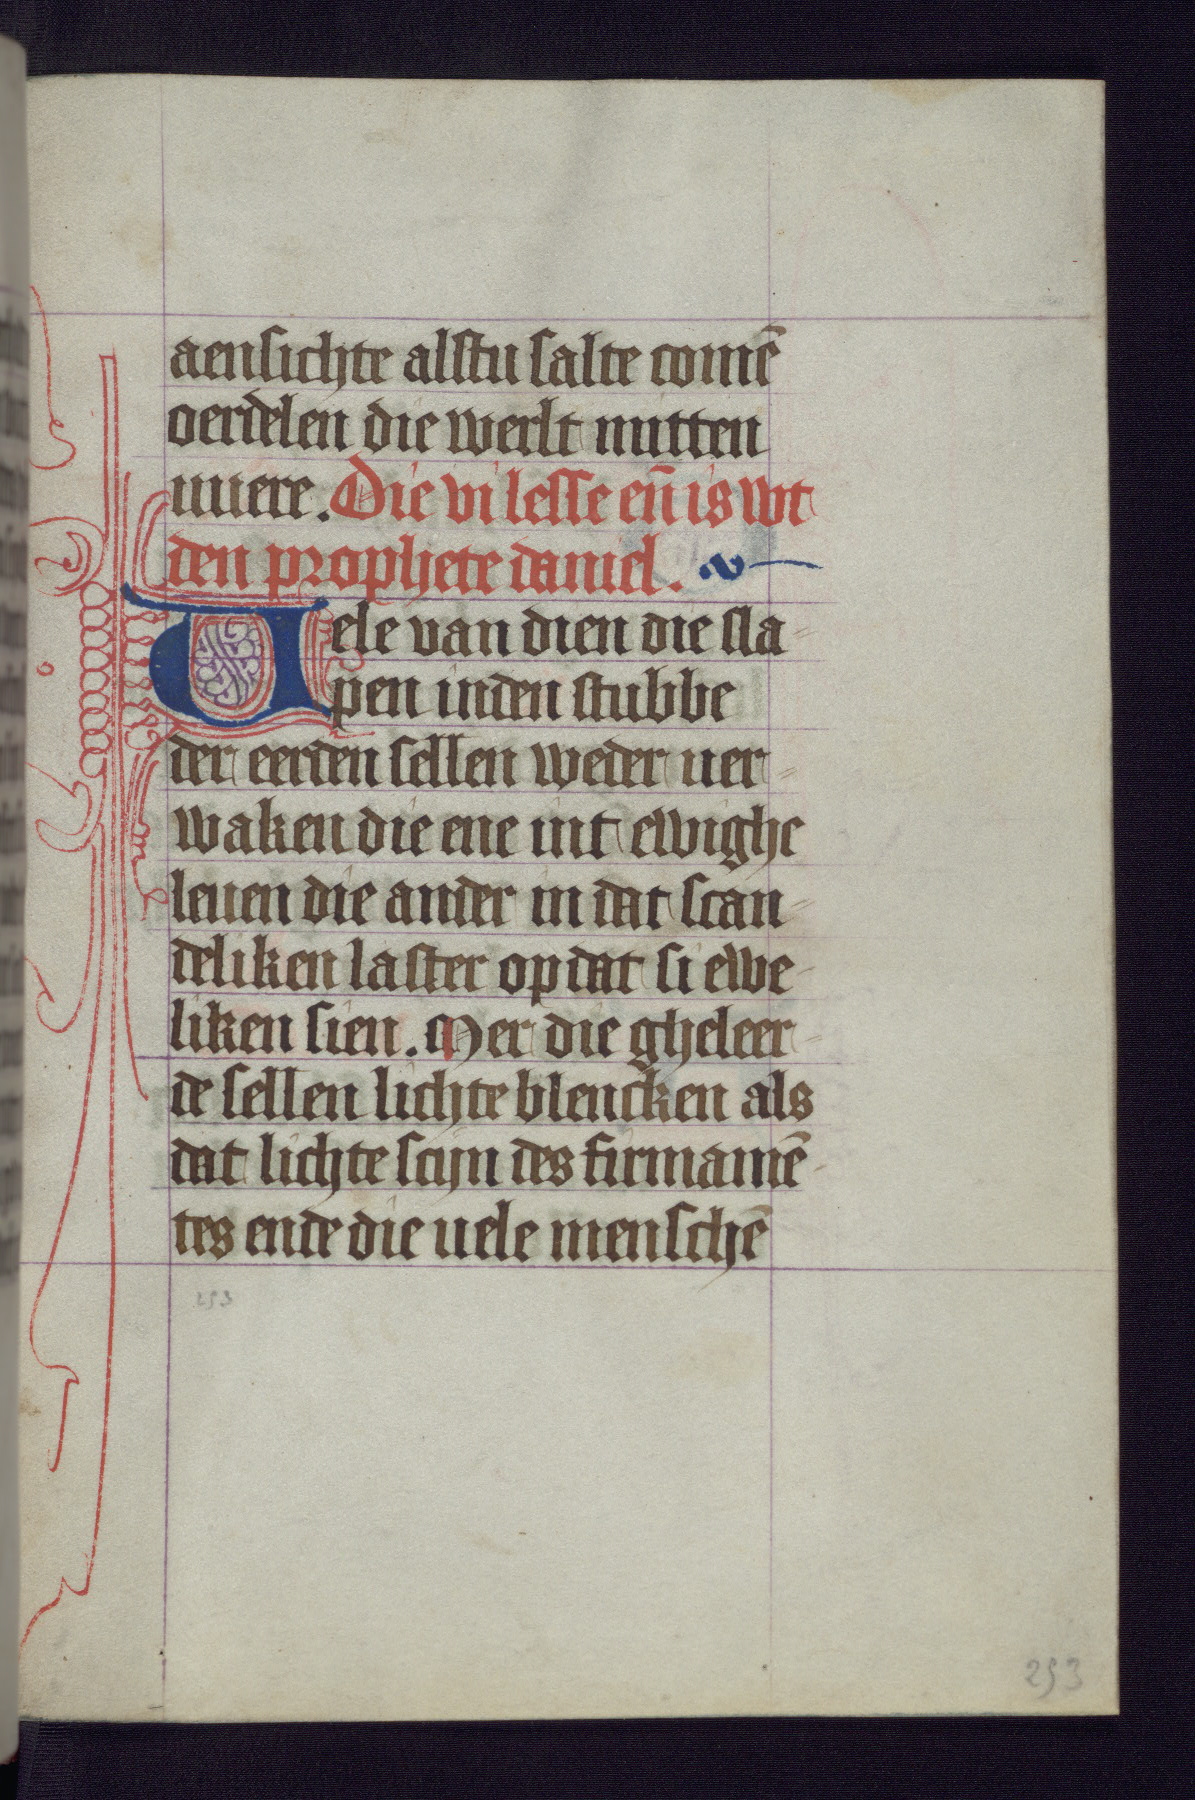 aensichte alstu salte comē
oerdelen die werlt mitten
uuere. Die vi lesse en̄ is wt
den prophete daniel.
Uele van dien die sla-
pen inden stubbe
der eerden sellen weder uer-
waken die ene int ewighe
leuen die ander in dat scan-
deliken laster op dat si ewe-
liken sien. Mer die gheleer-
de sellen lichte blencken als
dat lichte scijn des firmamē-
tes ende die uele menschē
253
253